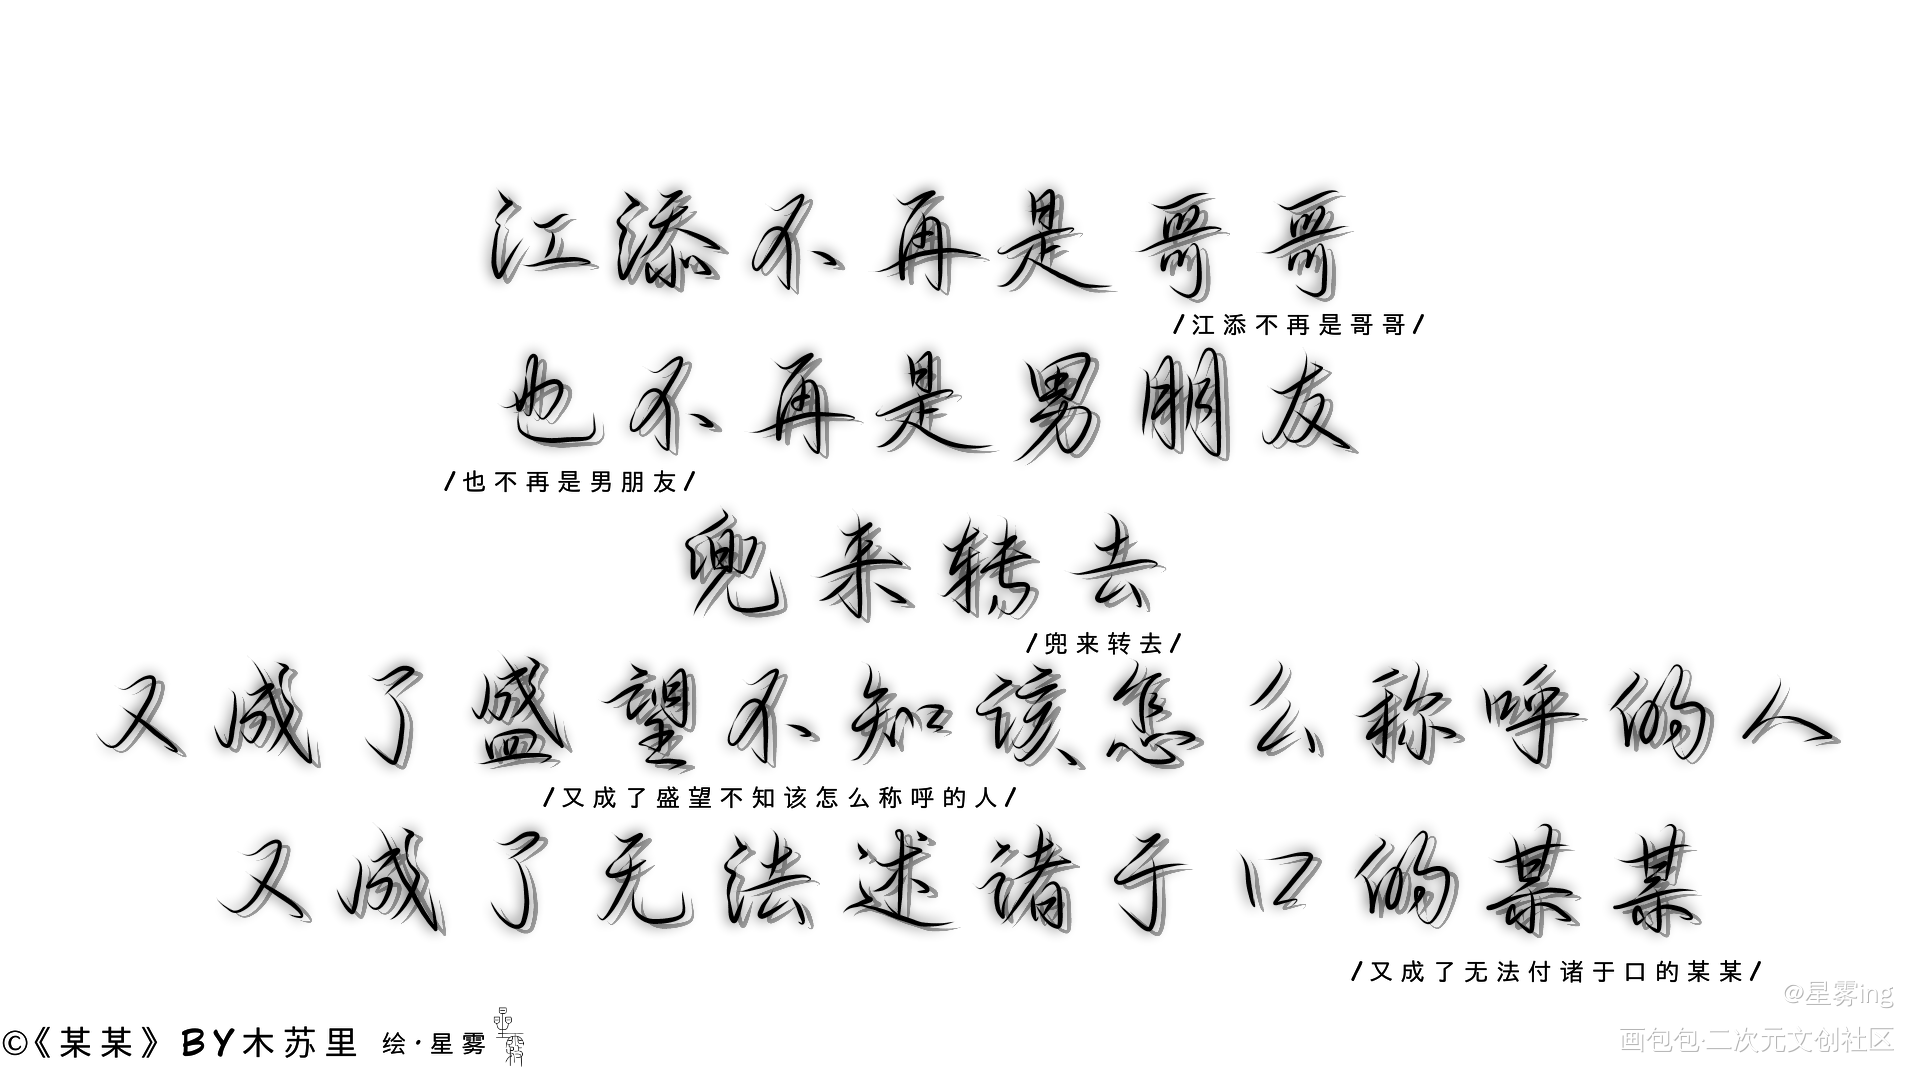 江添不再是哥哥
/江添不再是哥哥/
也不再是男朋友
/也不再是男朋友/
兜来转去
/兜来转去/
又成了盛望不知该怎么称呼的人
/又成了盛望不知该怎么称呼的人/
又成了无法述诸于口的某某
/又成了无法付诸于口的某某/
@星雾ing
©《某某》BY木苏里 绘·星雾 星雾
画包包·二次元文创社区